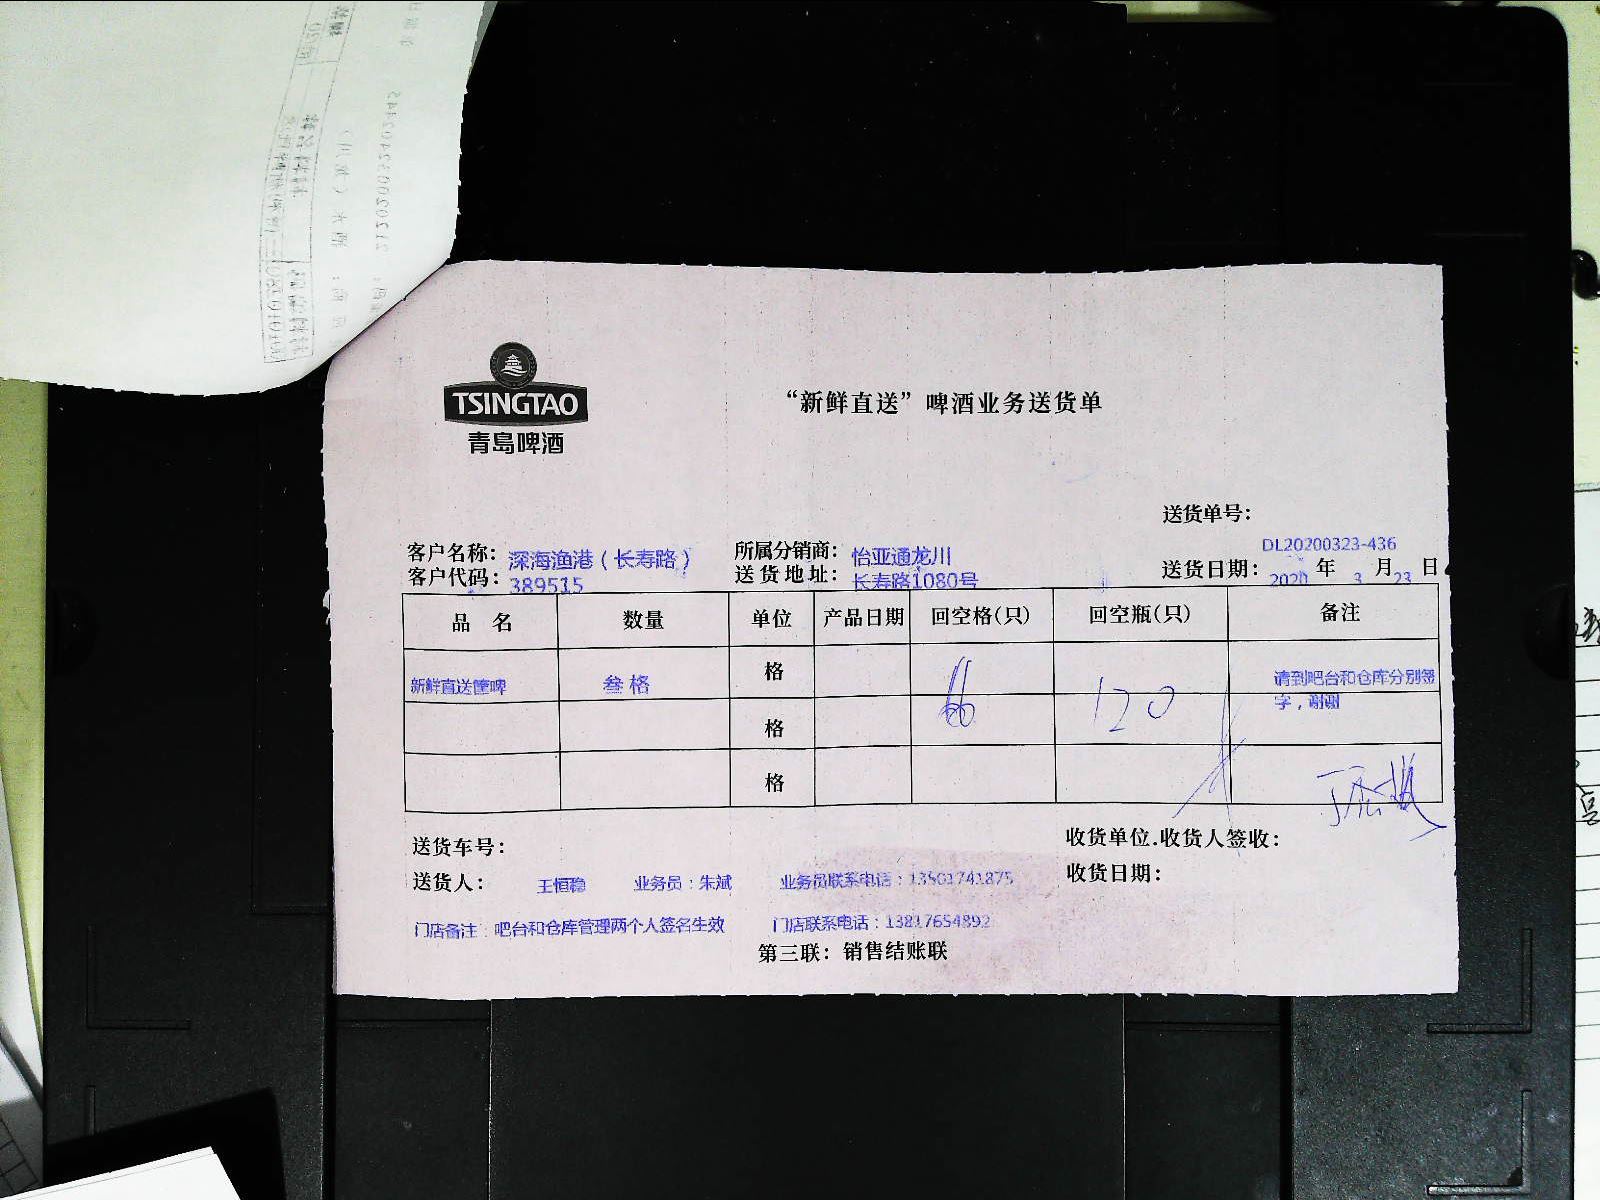 TSINGTAO
青岛啤酒
“新鲜直送”啤酒业务送货单
送货单号：
DL20200323-436
客户名称：深海渔港（长寿路） 所属分销商：怡亚通龙川
客户代码：389515 送货地址：长寿路1080号 送货日期：2020年3月23日
品 名 数量 单位 产品日期 回空格(只) 回空瓶(只) 备注
新鲜直送筐啤 叁格 格 120 请到吧台和仓库分别签
字，谢谢
格
格
送货车号： 收货单位.收货人签收：
送货人： 王恒稳 业务员：朱斌 业务员联系电话：13501741875 收货日期：
门店备注：吧台和仓库管理两个人签名生效 门店联系电话：13817654892
第三联：销售结账联